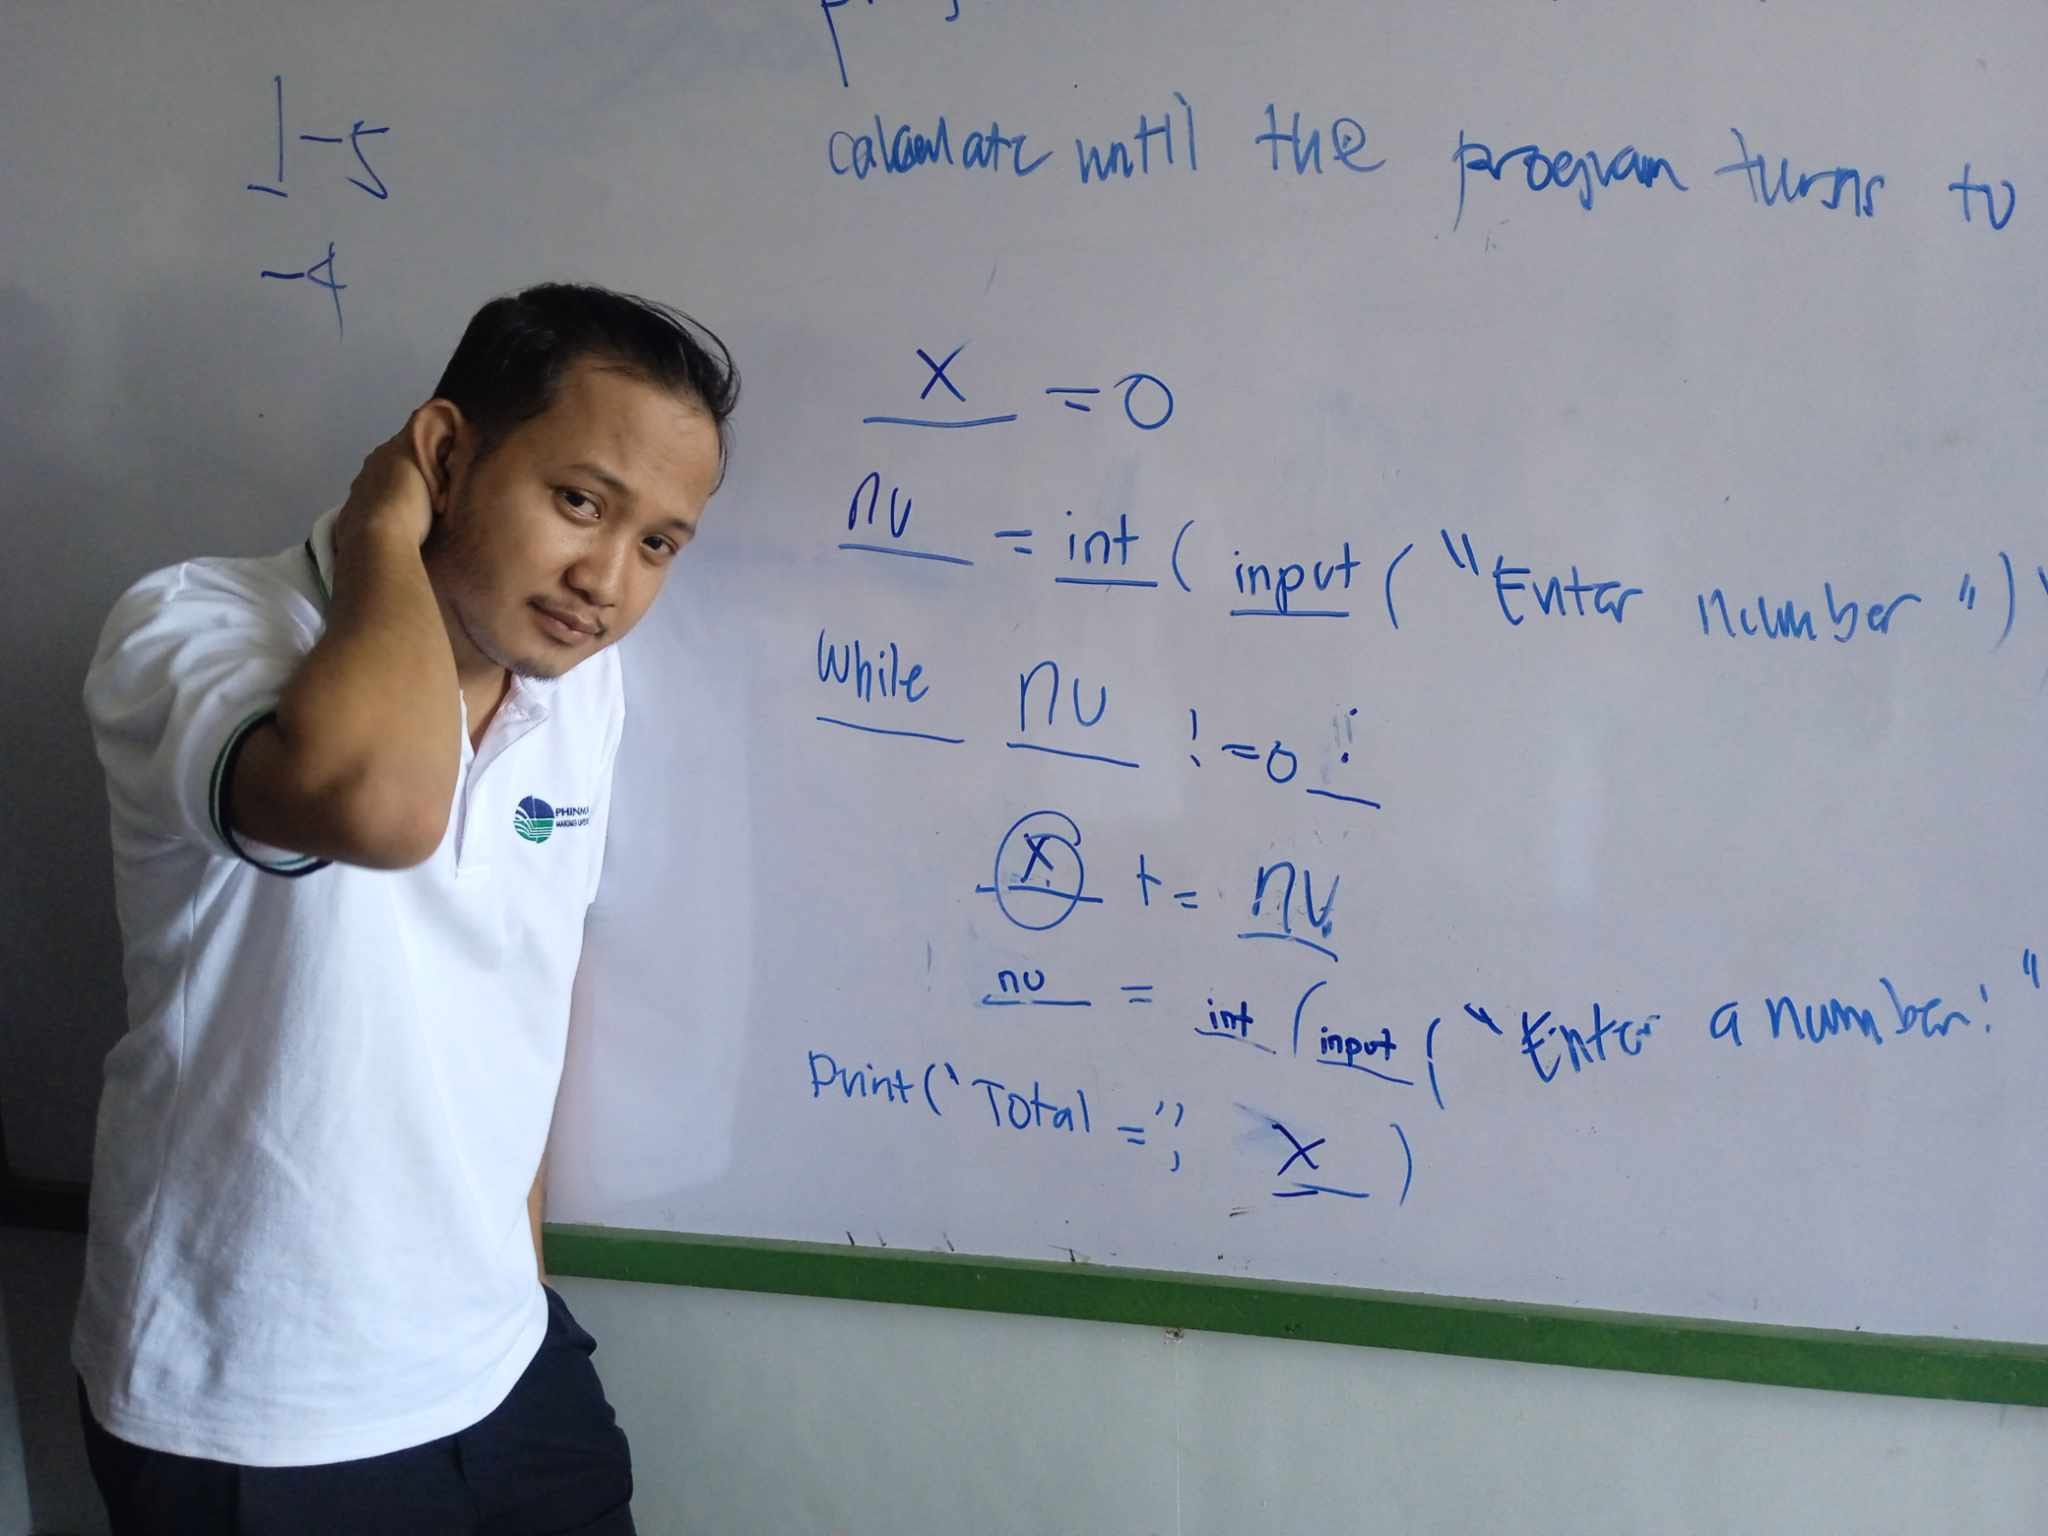 1-5
-4
calculate until the program turns to
x = 0
nu = int ( input ( "Enter number ")
While nu != 0 :
x += nu
nu = int ( input ( "Enter a number: "
Print( "Total =", x )
PHINMA